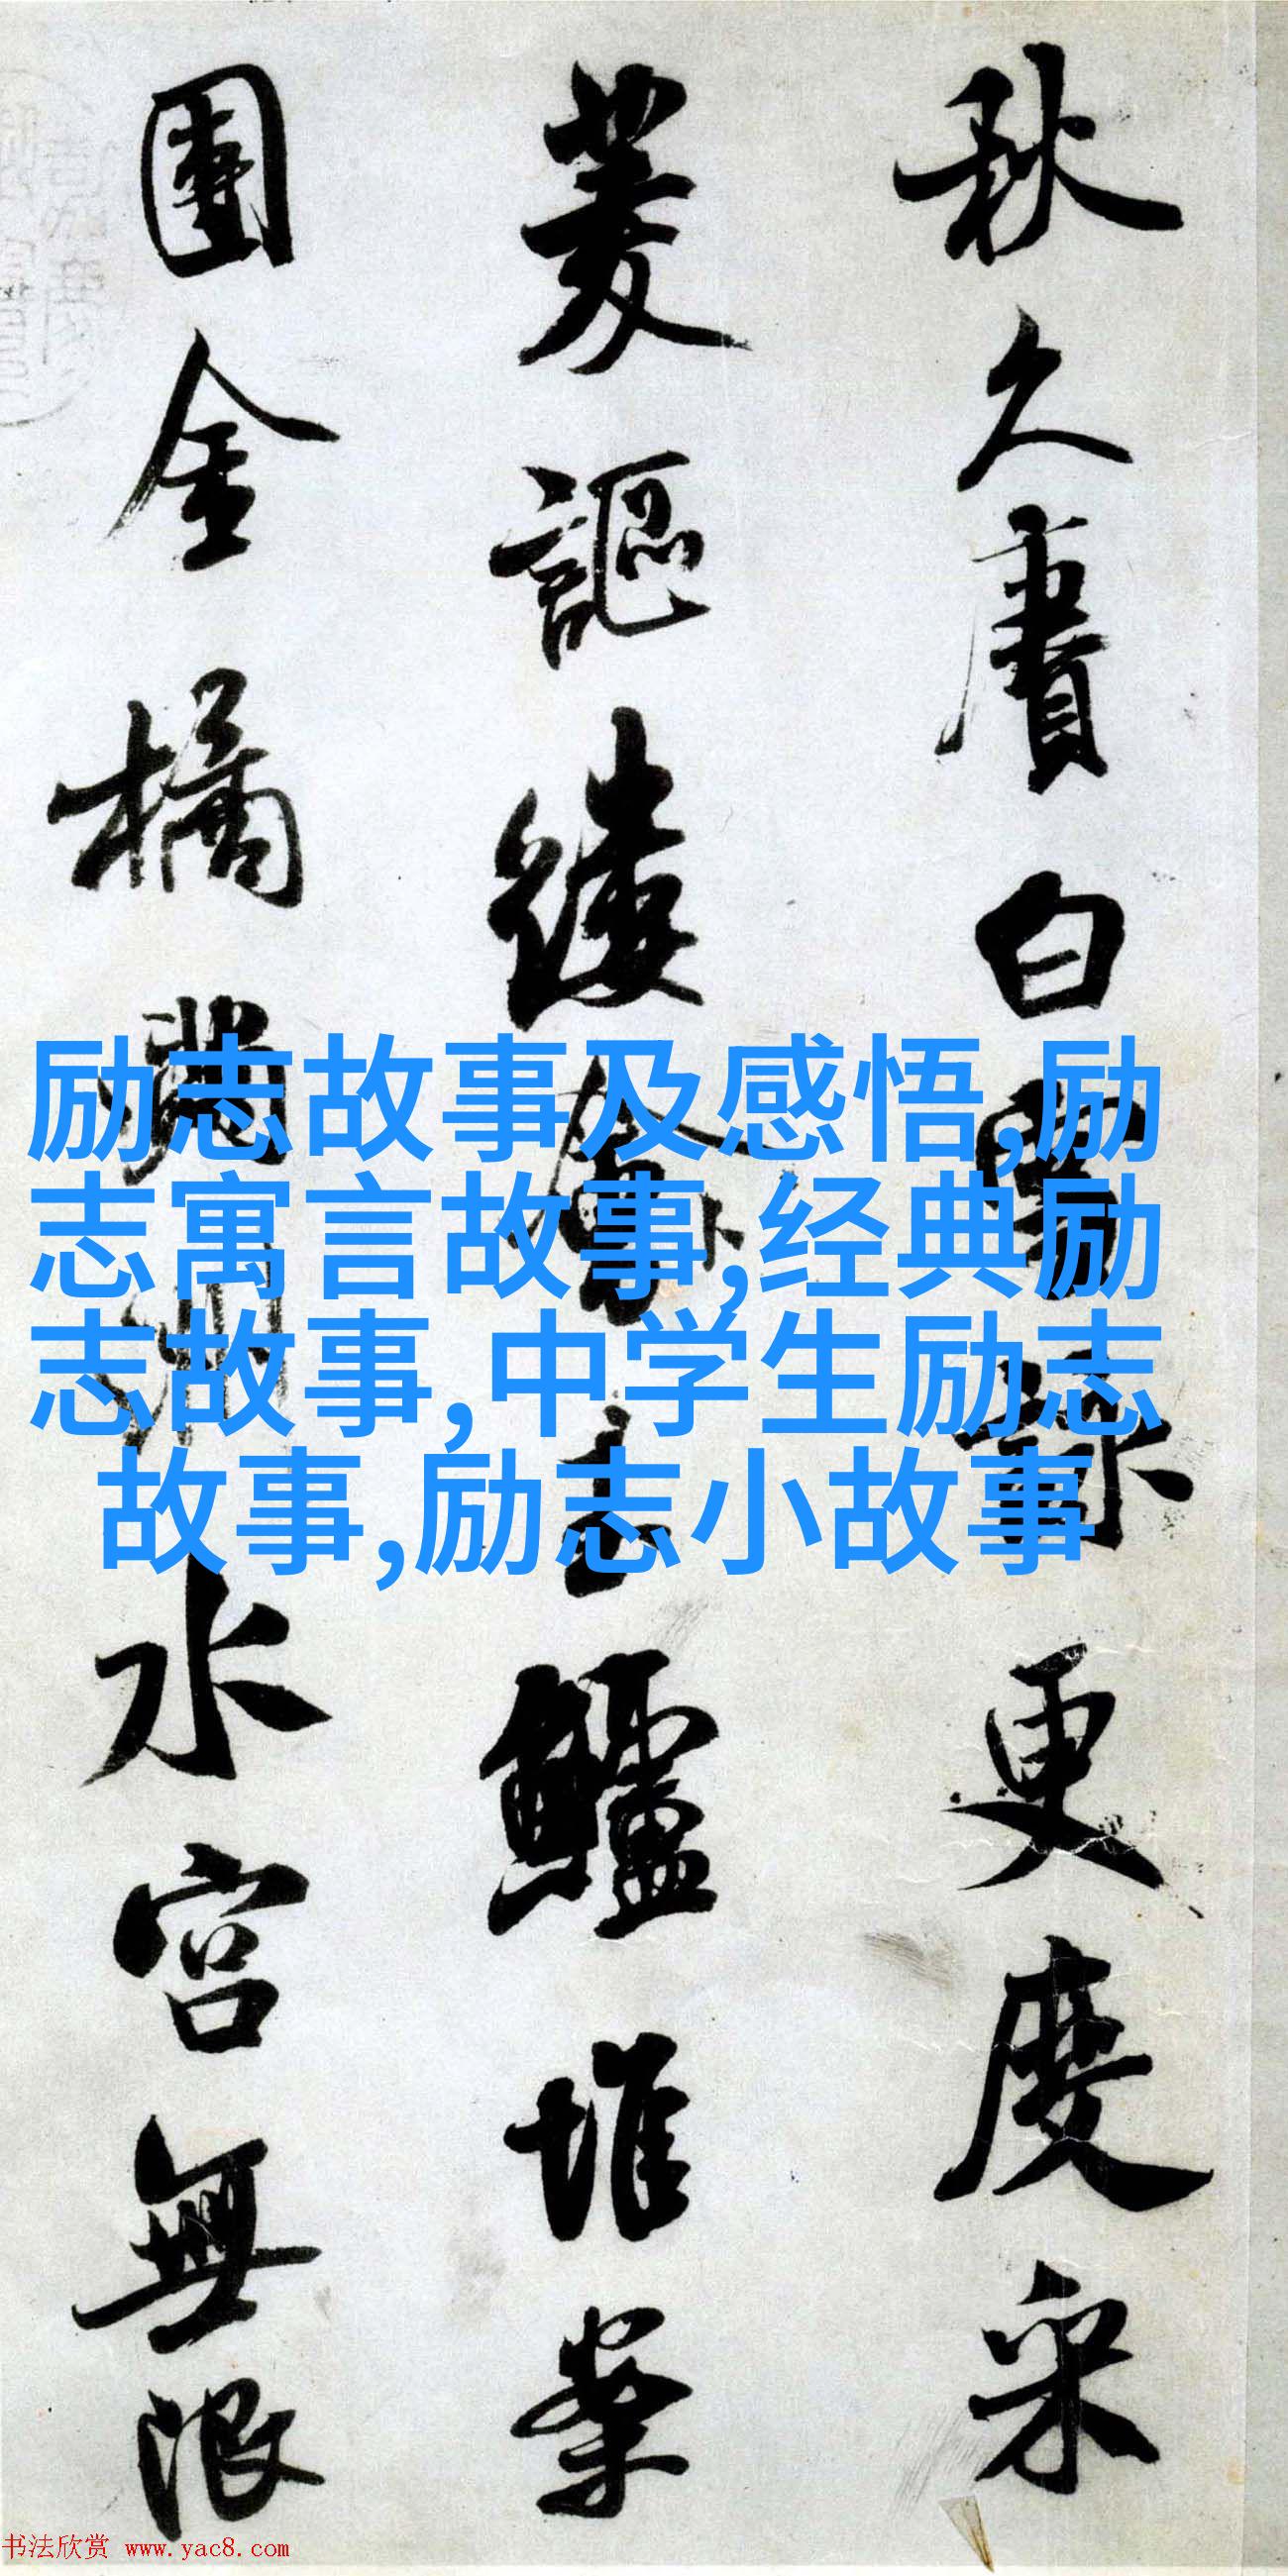 秋久賡白雪詠更度采
菱謳縷玉鱸堆案
團金橘滿洲水宮無限
励志故事及感悟,励
志寓言故事,经典励
志故事,中学生励志
故事,励志小故事
书法欣赏 www.yac8.com